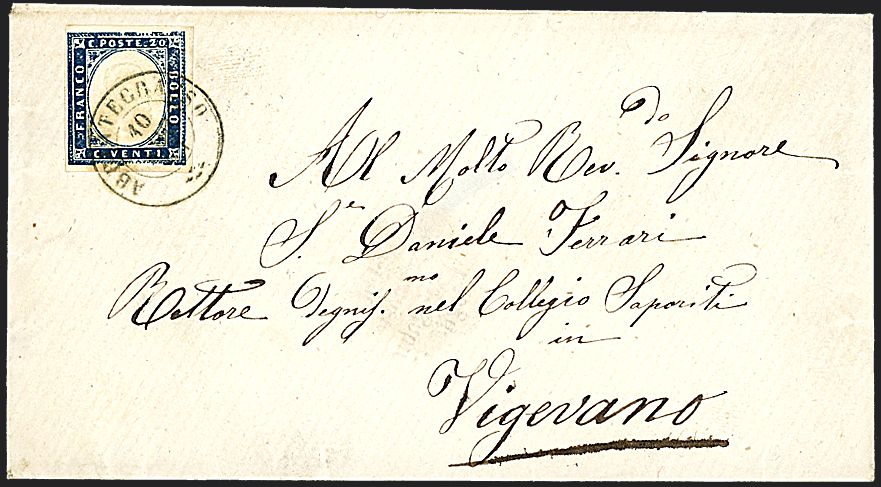 C. POSTE. 20
FRANCO
BOLLO
C. VENTI.
10
Al Molto Rev.do Signore
S.r Daniele Ferrari
Rettore Degnis.mo nel Collegio Saporiti
in
Vigevano